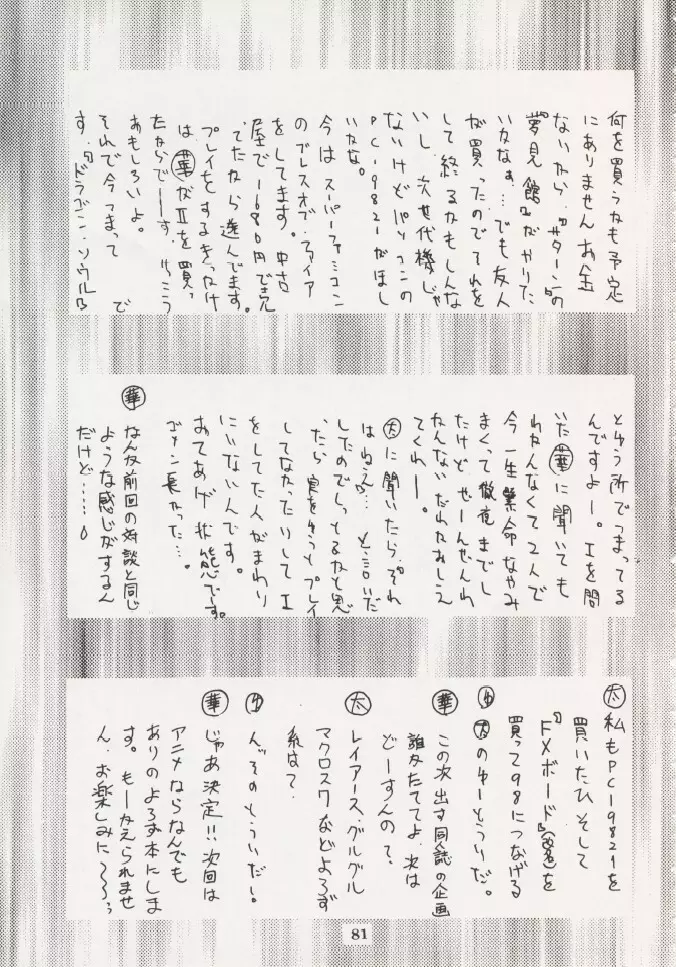 何を買うかも予定
にありません お金
ないから、『サターン』の
『夢見館』がやりた
いかなぁ…でも友人
が買ったのでそれを
して終るかもしんな
いし、次世代機じゃ
ないけどパソコンの
PC-9821がほし
いかな。
今はスーパーファミコン
のブレスオブ・ファイア
をしてます。中古
屋で1680円で売
ってたから遊んでます。
プレイをするきっかけ
は㊥がⅡを買っ
たからでーす。けっこう
おもしろいよ。
それで今つまって で
す。『ドラゴン・ソウル』
とゆう所でつまってる
んですよー。Ⅰを間
いた華に聞いても
わかんなくて2人で
今一生懸命なやみ
まくって徹夜までし
たけど ぜーんぜんわ
かんない だれかおしえ
てくれー。
太に聞いたら、“それ
はねえ”…と言いだ
したのでしってるかと思
ったら実をゆうとプレイ
してなかったりして Ⅰ
をしてた人がまわり
にいないんです。
おてあげ状態でーす。
ゴメン長かった…。
華 なんか前回の対談と同じ
ような感じがするん
だけど……
太 私もPC-9821を
買いたひ そして
『FXボード』(改名)を
買って98につなげる
太のゆーとうりだ。
華 この次出す同誌の企画
誰かたててよ、次は
どーすんの?
太 レイアース、グルグル
マクロスクなどよろず
系はて、
ん、そのとうりだー。
華 じゃあ決定!!次回は
アニメならなんでも
ありのよろず本にしま
す。もーかえられませ
ん、お楽しみに〜ろぅ
81